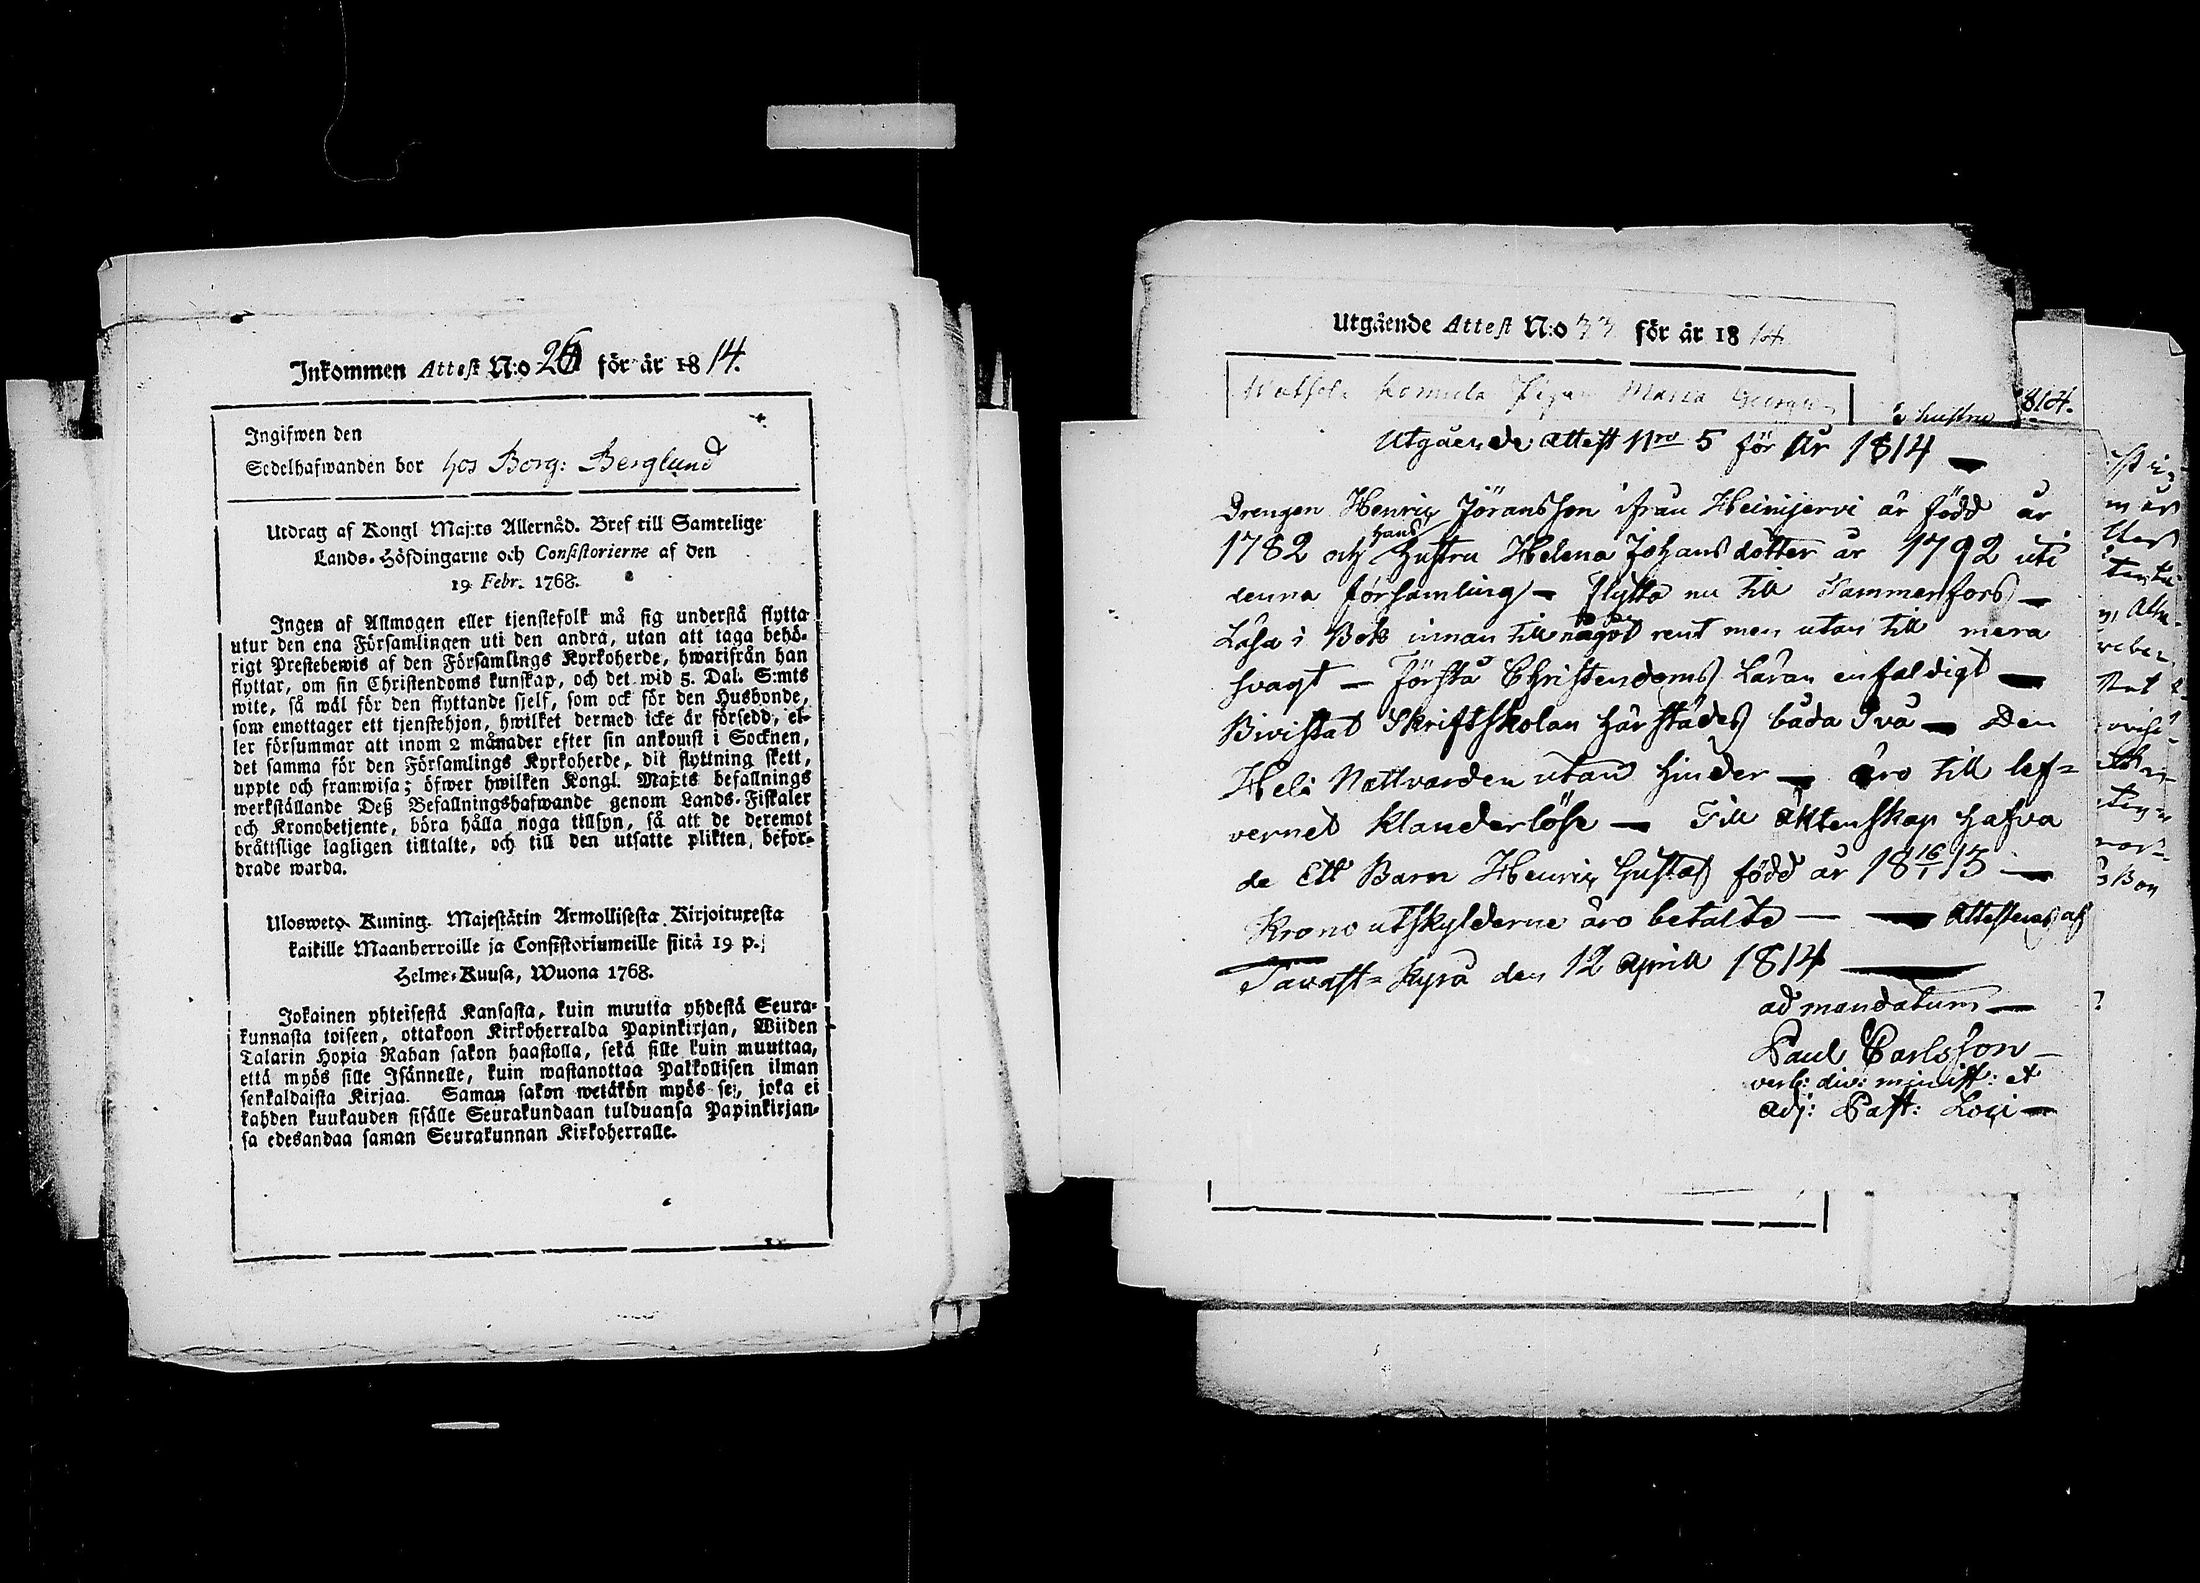 Inkommen Attest N:o 26 för år 1814.
Ingifwen den
Sedelhafwanden bor hos Borg: Berglund
Utdrag af Kongl Maj:ts Allernåd. Bref till Samtelige
Lands-Höfdingarne och Consistorierne af den
19 Febr. 1768.
Ingen af Allmogen eller tjenstefolk må sig understå flytta
utur den ena Församlingen uti den andra, utan att taga behö-
rigt Prestebewis af den Församlings Kyrkoherde, hwarifrån han
flyttar, om sin Christendoms kunskap, och det wid 5. Dal. S:mts
wite, så wäl för den flyttande sielf, som ock för den Husbonde,
som emottager ett tjenstehjon, hwilket dermed icke är försedd, el-
ler försummar att inom 2 månader efter sin ankomst i Socknen,
det samma för den Församlings Kyrkoherde, dit flyttning skett,
uppte och framwisa; öfwer hwilken Kongl. Maj:ts befallnings
werkställande Deß Befallningshafwande genom Lands-Fiskaler
och Kronobetjente, böra hålla noga tillsyn, så att de deremot
bråttslige lagligen tilltalte, och till den utsatte plikten, befor-
drade warda.
Ulosweto Kuning. Majestätin Armollisesta Kirjoituxesta
kaikille Maanherroille ja Consistoriumeille siitä 19 p.
Helme-Kuusa, Wuona 1768.
Jokainen yhteisestä Kansasta, kuin muutta yhdestä Seura-
kunnasta toiseen, ottakoon Kirkoherralda Papinkirjan, Wiiden
Talarin Hopia Rahan sakon haastolla, sekä sille kuin muuttaa,
että myös sille Isännelle, kuin wastanottaa Palkollisen ilman
senkaldaista Kirjaa. Saman sakon wetäkön myös se, joka ei
kahden kuukauden sisälle Seurakundaan tulduansa Papinkirjan-
sa edesandaa saman Seurakunnan Kirkoherralle.
Utgående Attest N:o 33 för år 1814.
Maria
hustru 1814.
Utgående attest Nro 5 för År 1814
Drengen Henric Jöransson ifrån Heinijervi är född år
1782 och hans Hustru Helena Johansdotter år 1792 uti
denna församling – flytta nu till Tammerfors –
Läsa i Bok innan till något rent men utan till mera
svagt – Förstå Christendoms Läran enfaldigt –
Bivistat Skriftskolan härstädes båda två – Den
Hel: Nattvarden utan hinder – äro till lef=
vernet klanderlöse – Till Äktenskap hafva
de Ett Barn Henric Gustaf född år 18 16/1 13 –
Krono utskylderne äro betalte – Attesteras af
Tavast-Kyro den 12 Aprill 1814
ad mandatum
Paul Carlsson
verb: div: minist: et
Adj: Past: Loci